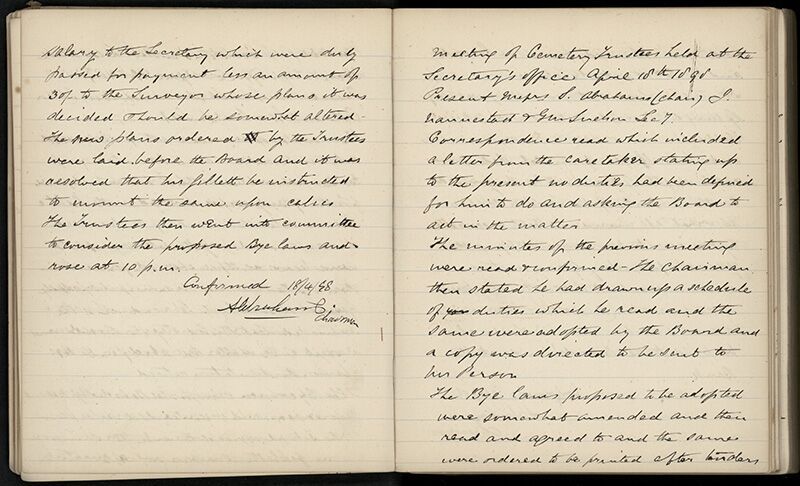 salary to the Secretary which were duly
passed for payment less an amount of
30/- to the Surveyor whose plans it was
decided should be somewhat altered.
The new plans ordered by the Trustees
were laid before the Board and it was
resolved that Mr Gillett be instructed
to mount the same upon calico
The Trustees then went into committee
to consider the proposed Bye laws and
rose at 10 p.m.
Confirmed 18/4/98
Abrahams
Chairman
Meeting of Cemetery Trustees held at the
Secretary's office April 18th 1898
Present Messrs S. Abrahams (Chair) J.
& Secty
Correspondence read which included
a letter from the caretaker stating up
to the present no duties had been defined
for him to do and asking the Board to
act in the matter
The minutes of the previous meeting
were read & confirmed - The Chairman
then stated he had drawn up a schedule
of duties which he read and the
same were adopted by the Board and
a copy was directed to be sent to
Mr Person
The Bye laws proposed to be adopted
were somewhat amended and then
read and agreed to and the same
were ordered to be printed after tenders